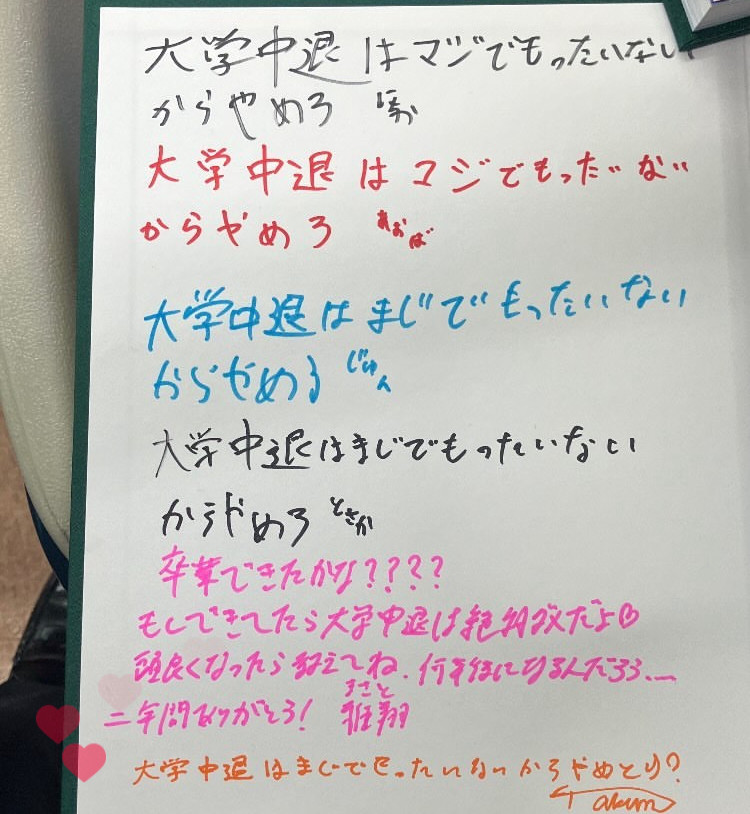 大学中退はマジでもったいない
からやめろ ほか
大学中退はマジでもったいない
からやめろ あおば
大学中退はまじでもったいない
からやめろ じゅん
大学中退はまじでもったいない
からやめろ とさか
卒業できたかな????
もしできてたら大学中退は絶対ダメだよ♡
頭良くなったら教えてね、何年後になるんだろう...
二年間ありがとう!
大学中退はまじでもったいないからやめとり?